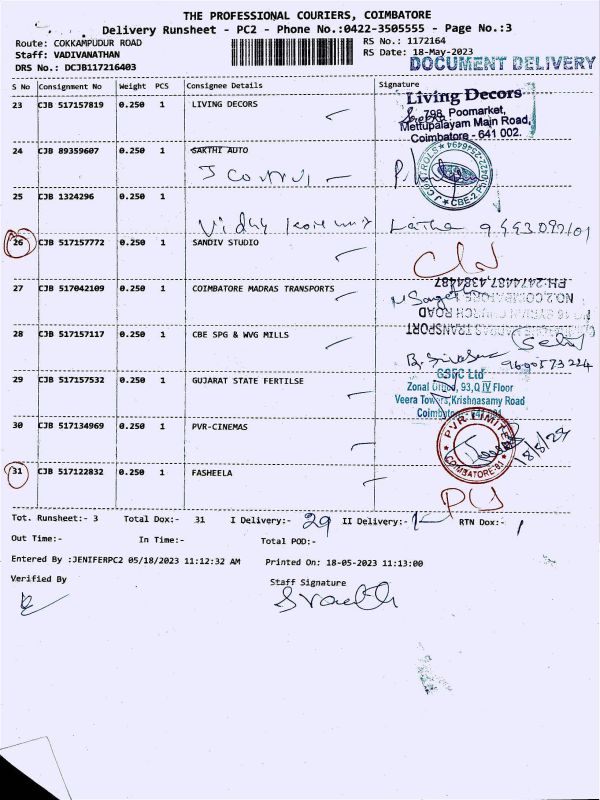 THE PROFESSIONAL COURIERS, COIMBATORE
Delivery Runsheet - PC2 - Phone No.:0422-3505555 - Page No.:3
Route: COKKAMPUDUR ROAD
RS No.: 1172164
Staff: VADIVANATHAN
RS Date: 18-May-2023
DRS No.: DCJB117216403
DOCUMENT DELIVERY
S No Consignment No Weight PCS Consignee Details Signature
23 CJB 517157819 0.250 1 LIVING DECORS
Living Decors
798, Poomarket,
Mettupalayam Main Road,
Coimbatore - 641 002.
24 CJB 89359607 0.250 1 SAKTHI AUTO
J Control
25 CJB 1324296 0.250 1
Vidhy
Latha
26 CJB 517157772 0.250 1 SANDIV STUDIO
27 CJB 517042109 0.250 1 COIMBATORE MADRAS TRANSPORTS
PH:2474487,4384487
28 CJB 517157117 0.250 1 CBE SPG & WVG MILLS
9600573224
29 CJB 517157532 0.250 1 GUJARAT STATE FERTILSE
GSFC Ltd
Zonal Office, 93,Q IV Floor
Veera Towers,Krishnasamy Road
30 CJB 517134969 0.250 1 PVR-CINEMAS
PVR LIMITED
COIMBATORE-81
18/5/23
31 CJB 517122832 0.250 1 FASHEELA
Tot. Runsheet:- 3 Total Dox:- 31 I Delivery:- 29 II Delivery:- 1 RTN Dox:- 1
Out Time:- In Time:- Total POD:-
Entered By :JENIFERPC2 05/18/2023 11:12:32 AM Printed On: 18-05-2023 11:13:00
Verified By Staff Signature